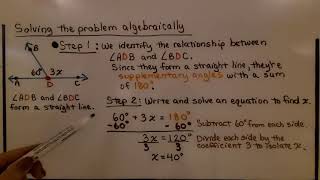 Solving the problem algebraically
Step 1: We identify the relationship between
∠ADB and ∠BDC.
Since they form a straight line, they're
supplementary angles with a sum
of 180°.
B
60° 3x
A D C
∠ADB and ∠BDC
form a straight line.
Step 2: Write and solve an equation to find x.
60° + 3x = 180°
-60° - 60° Subtract 60° from each side.
3x = 120° Divide each side by the
3 3 coefficient 3 to isolate x.
x = 40°